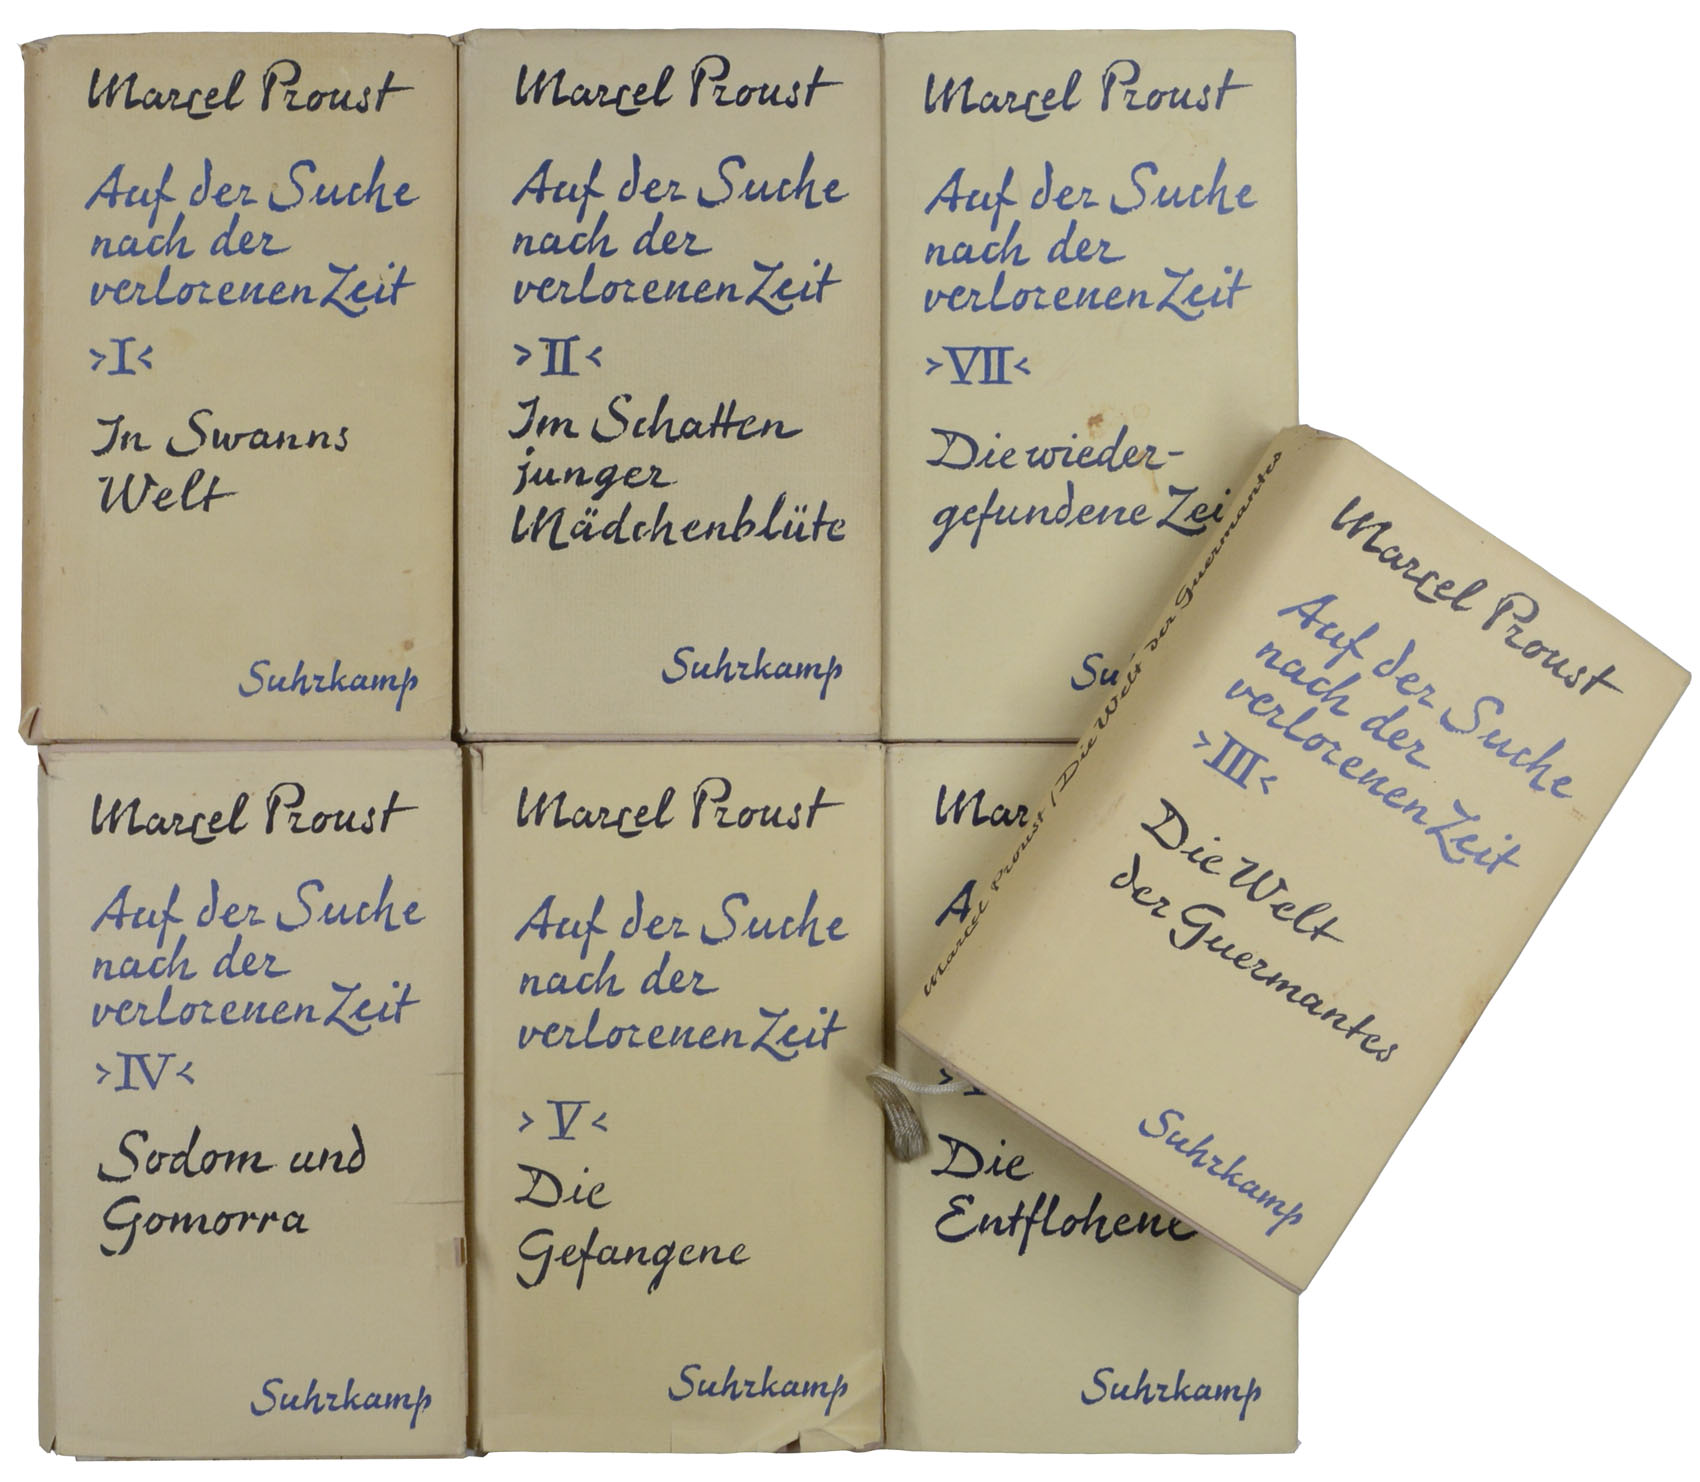 Marcel Proust
Auf der Suche
nach der
verlorenen Zeit
>I<
In Swanns
Welt
Suhrkamp
Marcel Proust
Auf der Suche
nach der
verlorenen Zeit
>II<
Im Schatten
junger
Mädchenblüte
Suhrkamp
Marcel Proust
Auf der Suche
nach der
verlorenen Zeit
>VII<
Die wieder-
gefundene Zei
Su
Marcel Proust / Die Welt der Guermantes
Marcel Proust
Auf der Suche
nach der
verlorenen Zeit
>III<
Die Welt
der Guermantes
Suhrkamp
Marcel Proust
Auf der Suche
nach der
verlorenen Zeit
>IV<
Sodom und
Gomorra
Suhrkamp
Marcel Proust
Auf der Suche
nach der
verlorenen Zeit
>V<
Die
Gefangene
Suhrkamp
Mar
A
Die
Entflohene
Suhrkamp